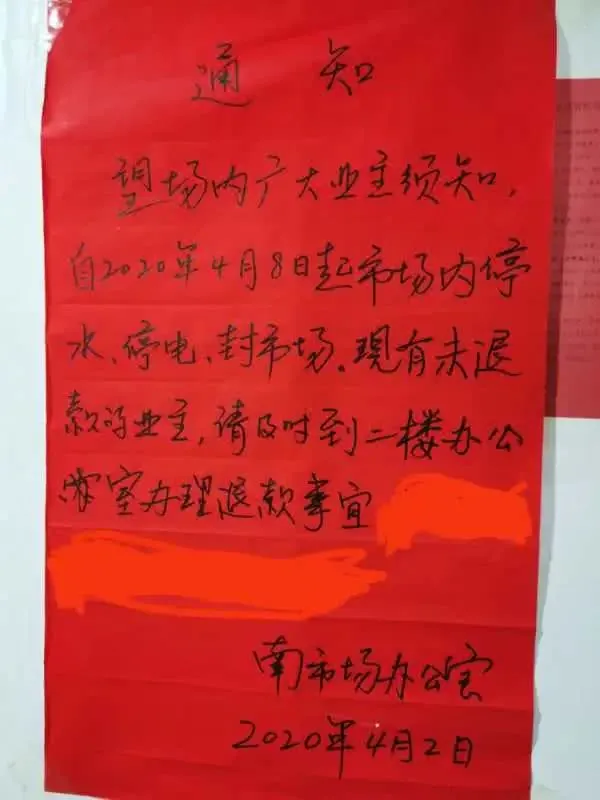 通 知
望场内广大业主须知，
自2020年4月8日起市场内停
水、停电、封市场。现有未退
款的业主，请及时到二楼办公
室办理退款事宜
南市场办公室
2020年4月2日